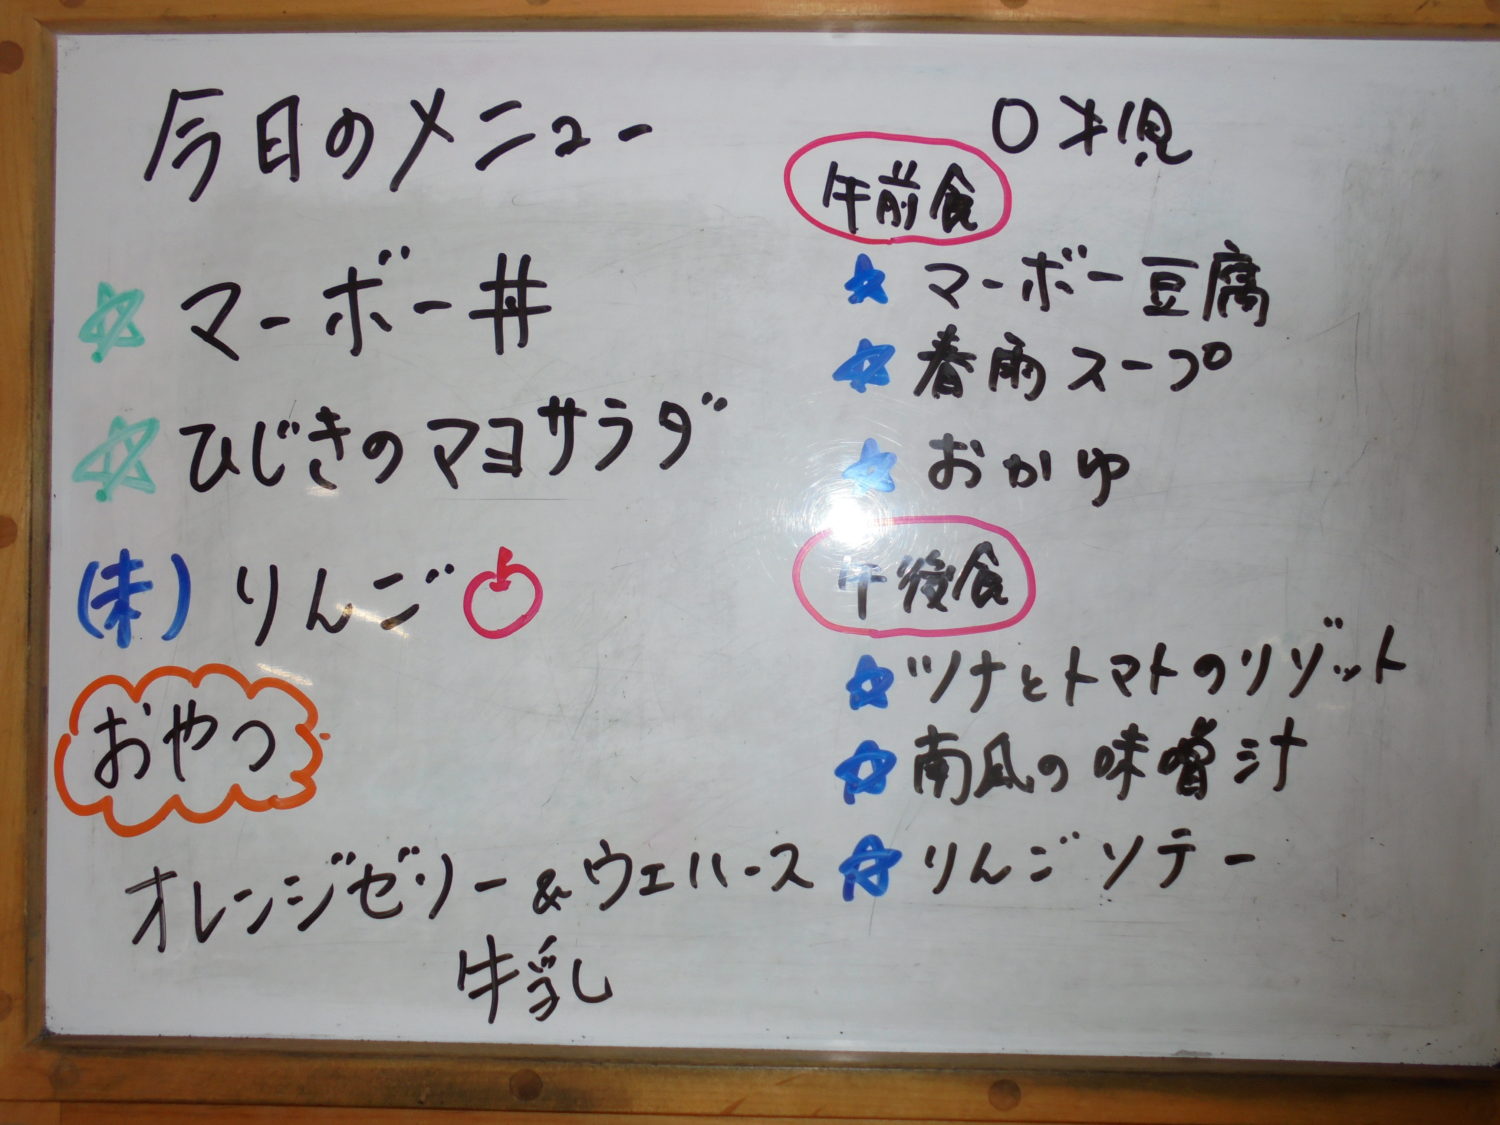 今日のメニュー
マーボー丼
ひじきのマヨサラダ
(未) りんご
おやつ
オレンジゼリー&ウエハース
牛乳
0才児
午前食
マーボー豆腐
春雨スープ
おかゆ
午後食
ツナとトマトのリゾット
南瓜の味噌汁
りんごソテー